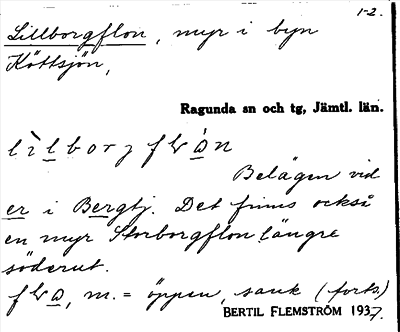 1-2.
Lillborgflon, myr i byn
Köttsjön,
Ragunda sn och tg, Jämtl. län.
Belägen vid
er i Bergtj. Det finns också
en myr Storborgflon längre
söderut.
m. = öppen, sank (forts.)
BERTIL FLEMSTRÖM 1937.